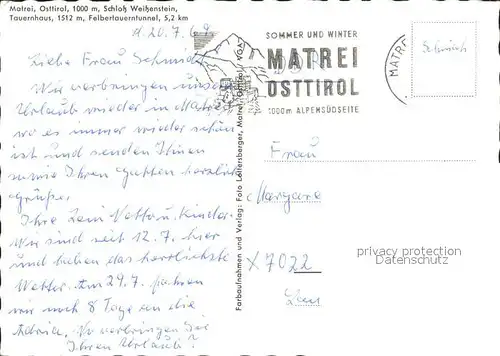 Matrei, Osttirol, 1000 m, Schloß Weißenstein,
Tauernhaus, 1512 m, Felbertauerntunnel, 5,2 km
d. 20.7.69
Liebe Frau Schmidt
Wir verbringen unseren
Urlaub wieder in Matrei
wo es immer wieder schön
ist und senden Ihnen
u. Ihrem Gatten herzliche
Grüße.
Ihre
u. Kinder.
Wir sind seit 12.7. hier
und haben das herrlichste
Wetter. Am 29.7. fahren
wir noch 8 Tage an die
Adria. Wo verbringen Sie
Ihren Urlaub?
Farbaufnahmen und Verlag: Foto Matrei, Osttirol
SOMMER UND WINTER
MATREI
OSTTIROL
1000m ALPENSÜDSEITE
MATRE
Schmidt
Frau
X 7022
privacy protection
Datenschutz